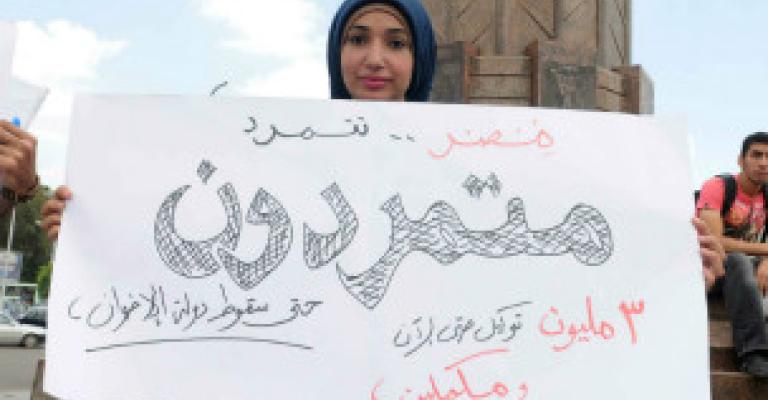 مصر .. تتمرد
متمردون
حتى سقوط دولة الإخوان
٣ مليون توكيل حتى الآن
ومكملين